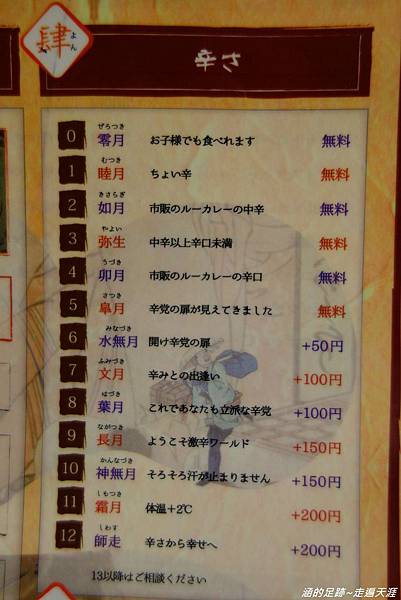 肆
よん
辛さ
ぜろつき
0 零月 お子様でも食べれます 無料
むつき
1 睦月 ちょい辛 無料
きさらぎ
2 如月 市販のルーカレーの中辛 無料
やよい
3 弥生 中辛以上辛口未満 無料
うづき
4 卯月 市販のルーカレーの辛口 無料
さつき
5 皐月 辛党の扉が見えてきました 無料
みなづき
6 水無月 開け辛党の扉 +50円
ふみづき
7 文月 辛みとの出逢い +100円
はづき
8 葉月 これであなたも立派な辛党 +100円
ながつき
9 長月 ようこそ激辛ワールド +150円
かんなづき
10 神無月 そろそろ汗が止まりません +150円
しもつき
11 霜月 体温+2℃ +200円
しわす
12 師走 辛さから幸せへ +200円
13以降はご相談ください
涵的足跡~走遍天涯